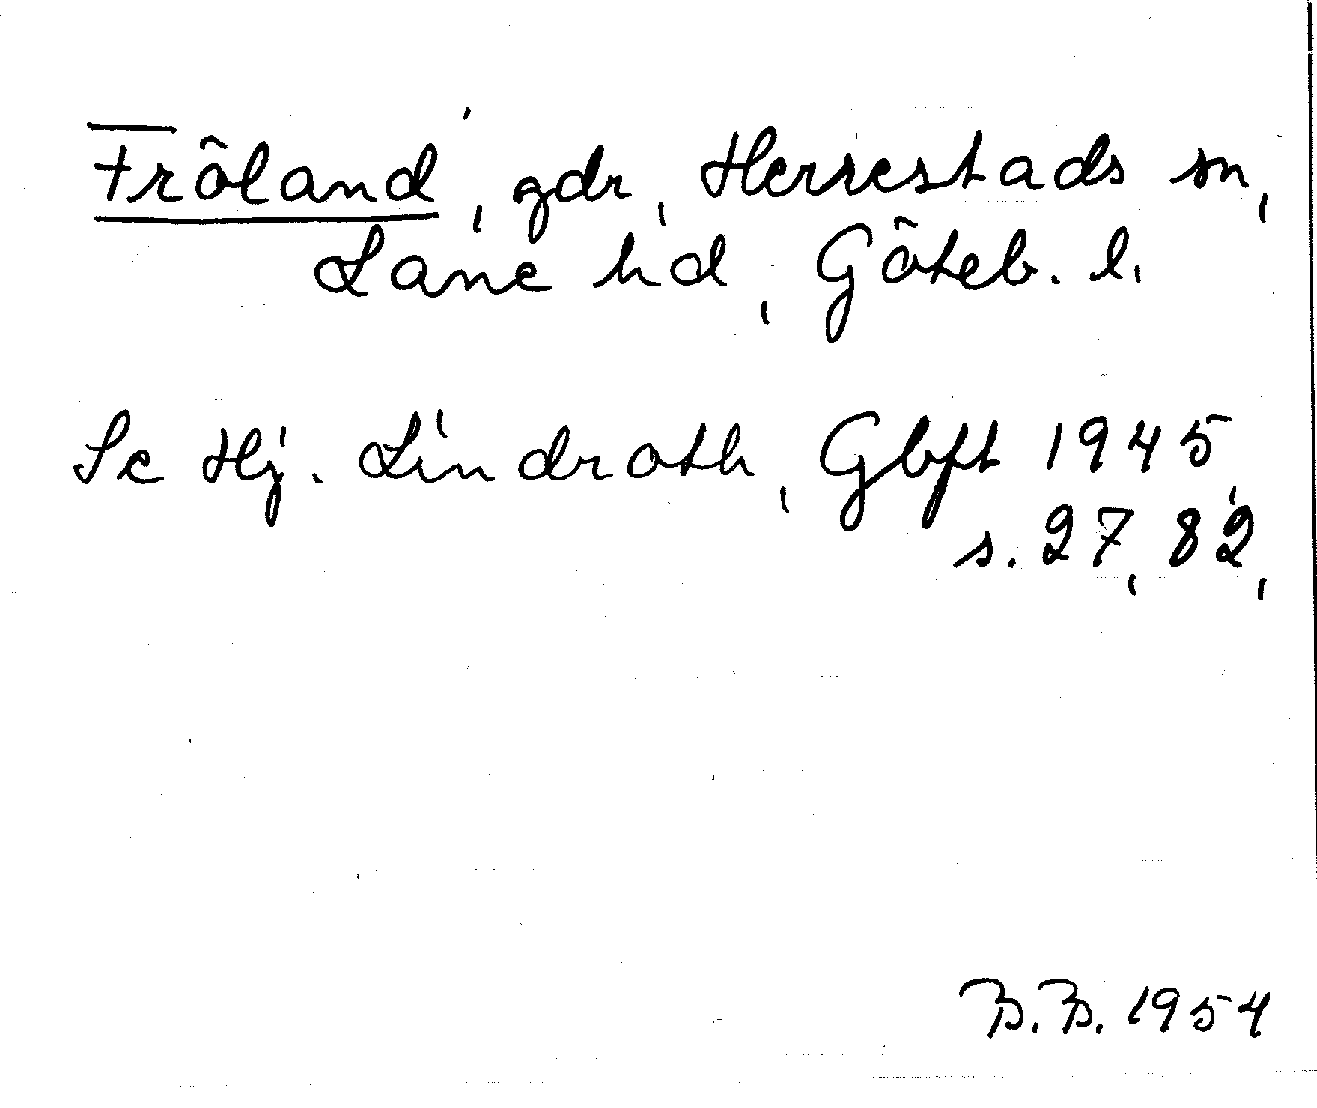 Fröland, gdr, Herrestads sn,
Lane hd, Göteb. l.
Se Hj. Lindroth, Gbft 1945,
s. 27, 82,
B.B. 1954